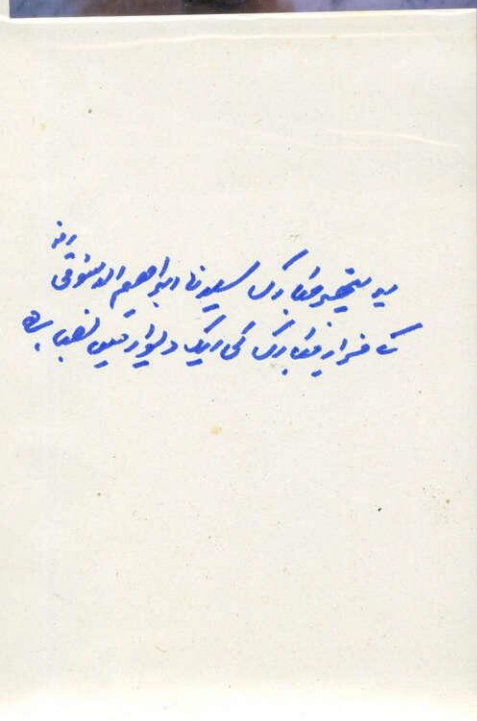 رضہ
یہ پتھر مبارک سیدنا ابراھیم الدسوقی
مزار مبارک کی ایک دیوار میں نصب ہے